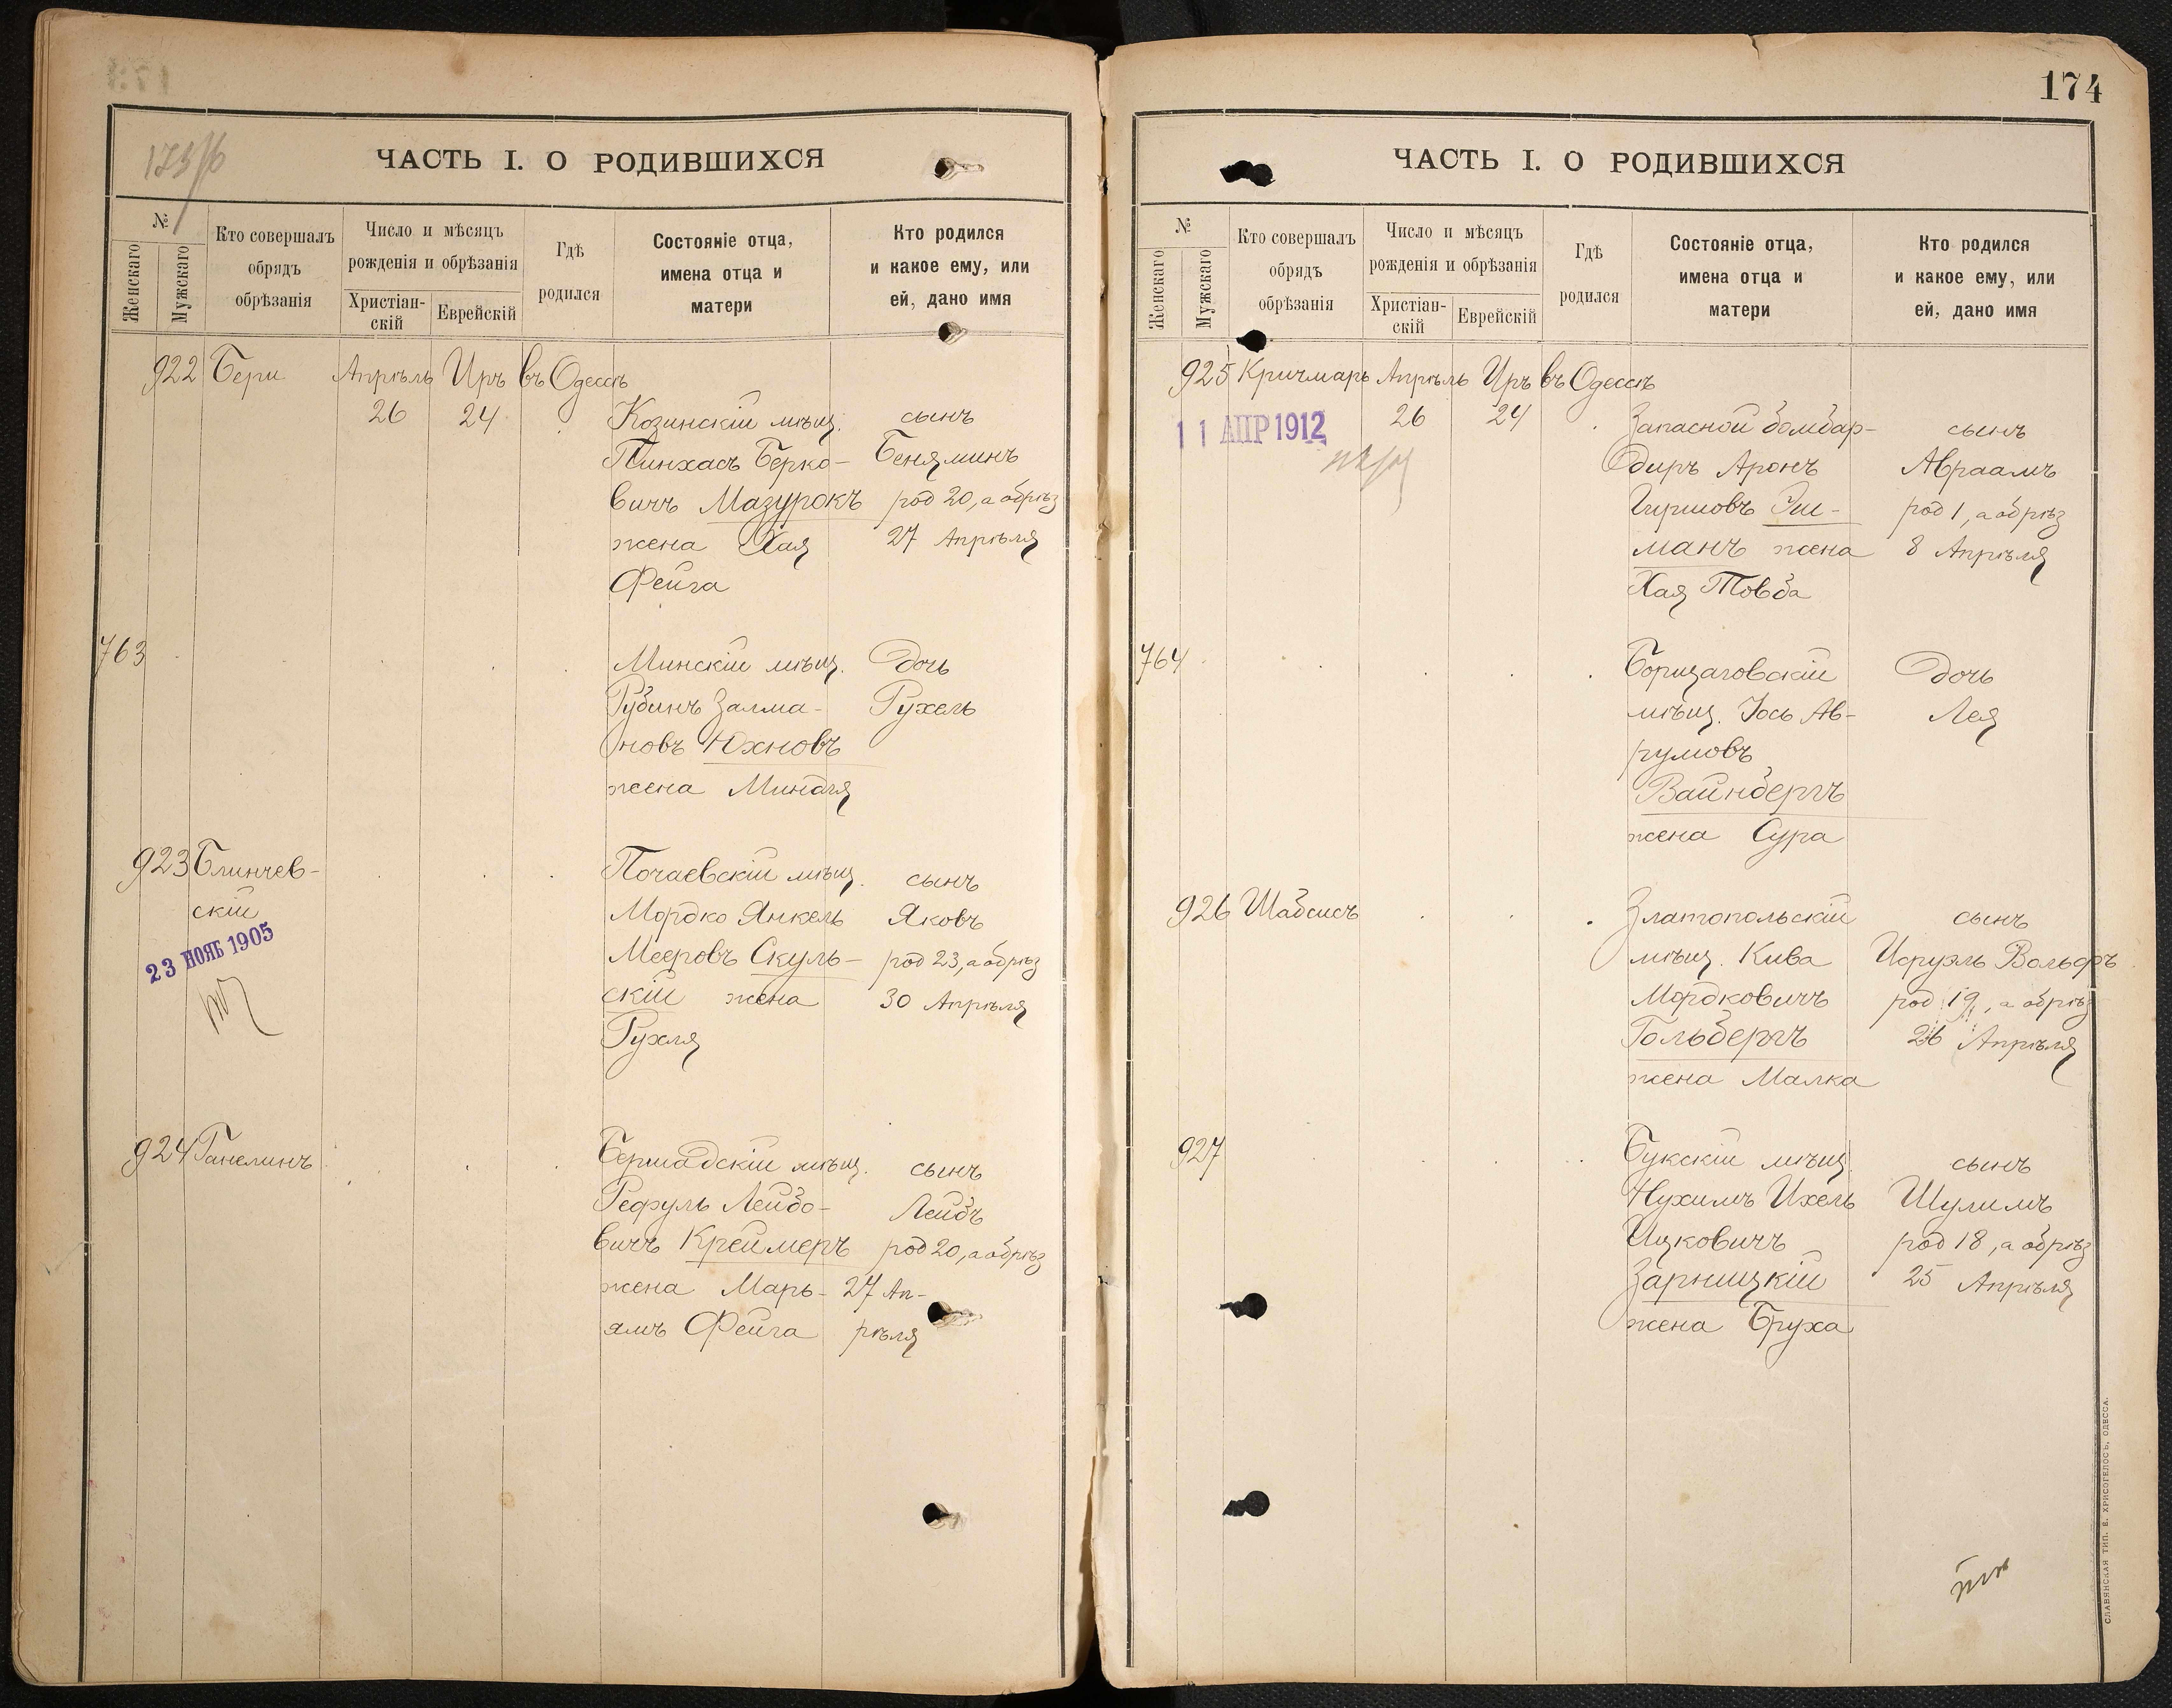 173/б
ЧАСТЬ I. О РОДИВШИХСЯ
№
Женскаго
Мужскаго
Кто совершалъ
обрядъ
обрѣзанія
Число и мѣсяцъ
рожденія и обрѣзанія
Христіан-
скій
Еврейскій
Гдѣ
родился
Состояніе отца,
имена отца и
матери
Кто родился
и какое ему, или
ей, дано имя
922 Бери Апрѣль Иръ въ Одессѣ
26 24 Козинскій мѣщ. сынъ
Пинхасъ Берко- Беняминъ
вичъ Мазурокъ род 20, а обрѣз
жена Хая 27 Апрѣля
Фейга
763 Минскій мѣщ. дочь
Рубинъ Залма- Рухель
новъ Юхновъ
жена Миндля
923 Блинчев- Почаевскій мѣщ. сынъ
скій Мордко Янкель Яковъ
23 НОЯБ 1905 Мееровъ Скуль- род 23, а обрѣз
скій жена 30 Апрѣля
Рухля
924 Ганелинъ Бершадскій мѣщ. сынъ
Рефуль Лейбо- Лейбъ
вичъ Креймеръ род 20, а обрѣз
жена Марь- 27 Ап-
ямъ Фейга рѣля
174
ЧАСТЬ I. О РОДИВШИХСЯ
№
Женскаго
Мужскаго
Кто совершалъ
обрядъ
обрѣзанія
Число и мѣсяцъ
рожденія и обрѣзанія
Христіан-
скій
Еврейскій
Гдѣ
родился
Состояніе отца,
имена отца и
матери
Кто родился
и какое ему, или
ей, дано имя
925 Кричмаръ Апрѣль Иръ въ Одессѣ
11 АПР 1912 26 24 Запасной бомбар- сынъ
диръ Аронъ Авраамъ
Гиршовъ Эш- род 1, а обрѣз
манъ жена 8 Апрѣля
Хая Товба
764 Борщаговскій дочь
мѣщ. Іось Ав- Лея
румовъ
Вайнбергъ
жена Сура
926 Шабсисъ Златопольскій сынъ
мѣщ. Кива Исруэль Вольфъ
Мордковичъ род 19, а обрѣз
Гольбергъ 26 Апрѣля
жена Малка
927 Букскій мѣщ. сынъ
Нухимъ Ихель Шулимъ
Ицковичъ род 18, а обрѣз
Зарницкій 25 Апрѣля
жена Бруха
СЛАВЯНСКАЯ ТИП. Е. ХРИСОГЕЛОСЪ, ОДЕССА.